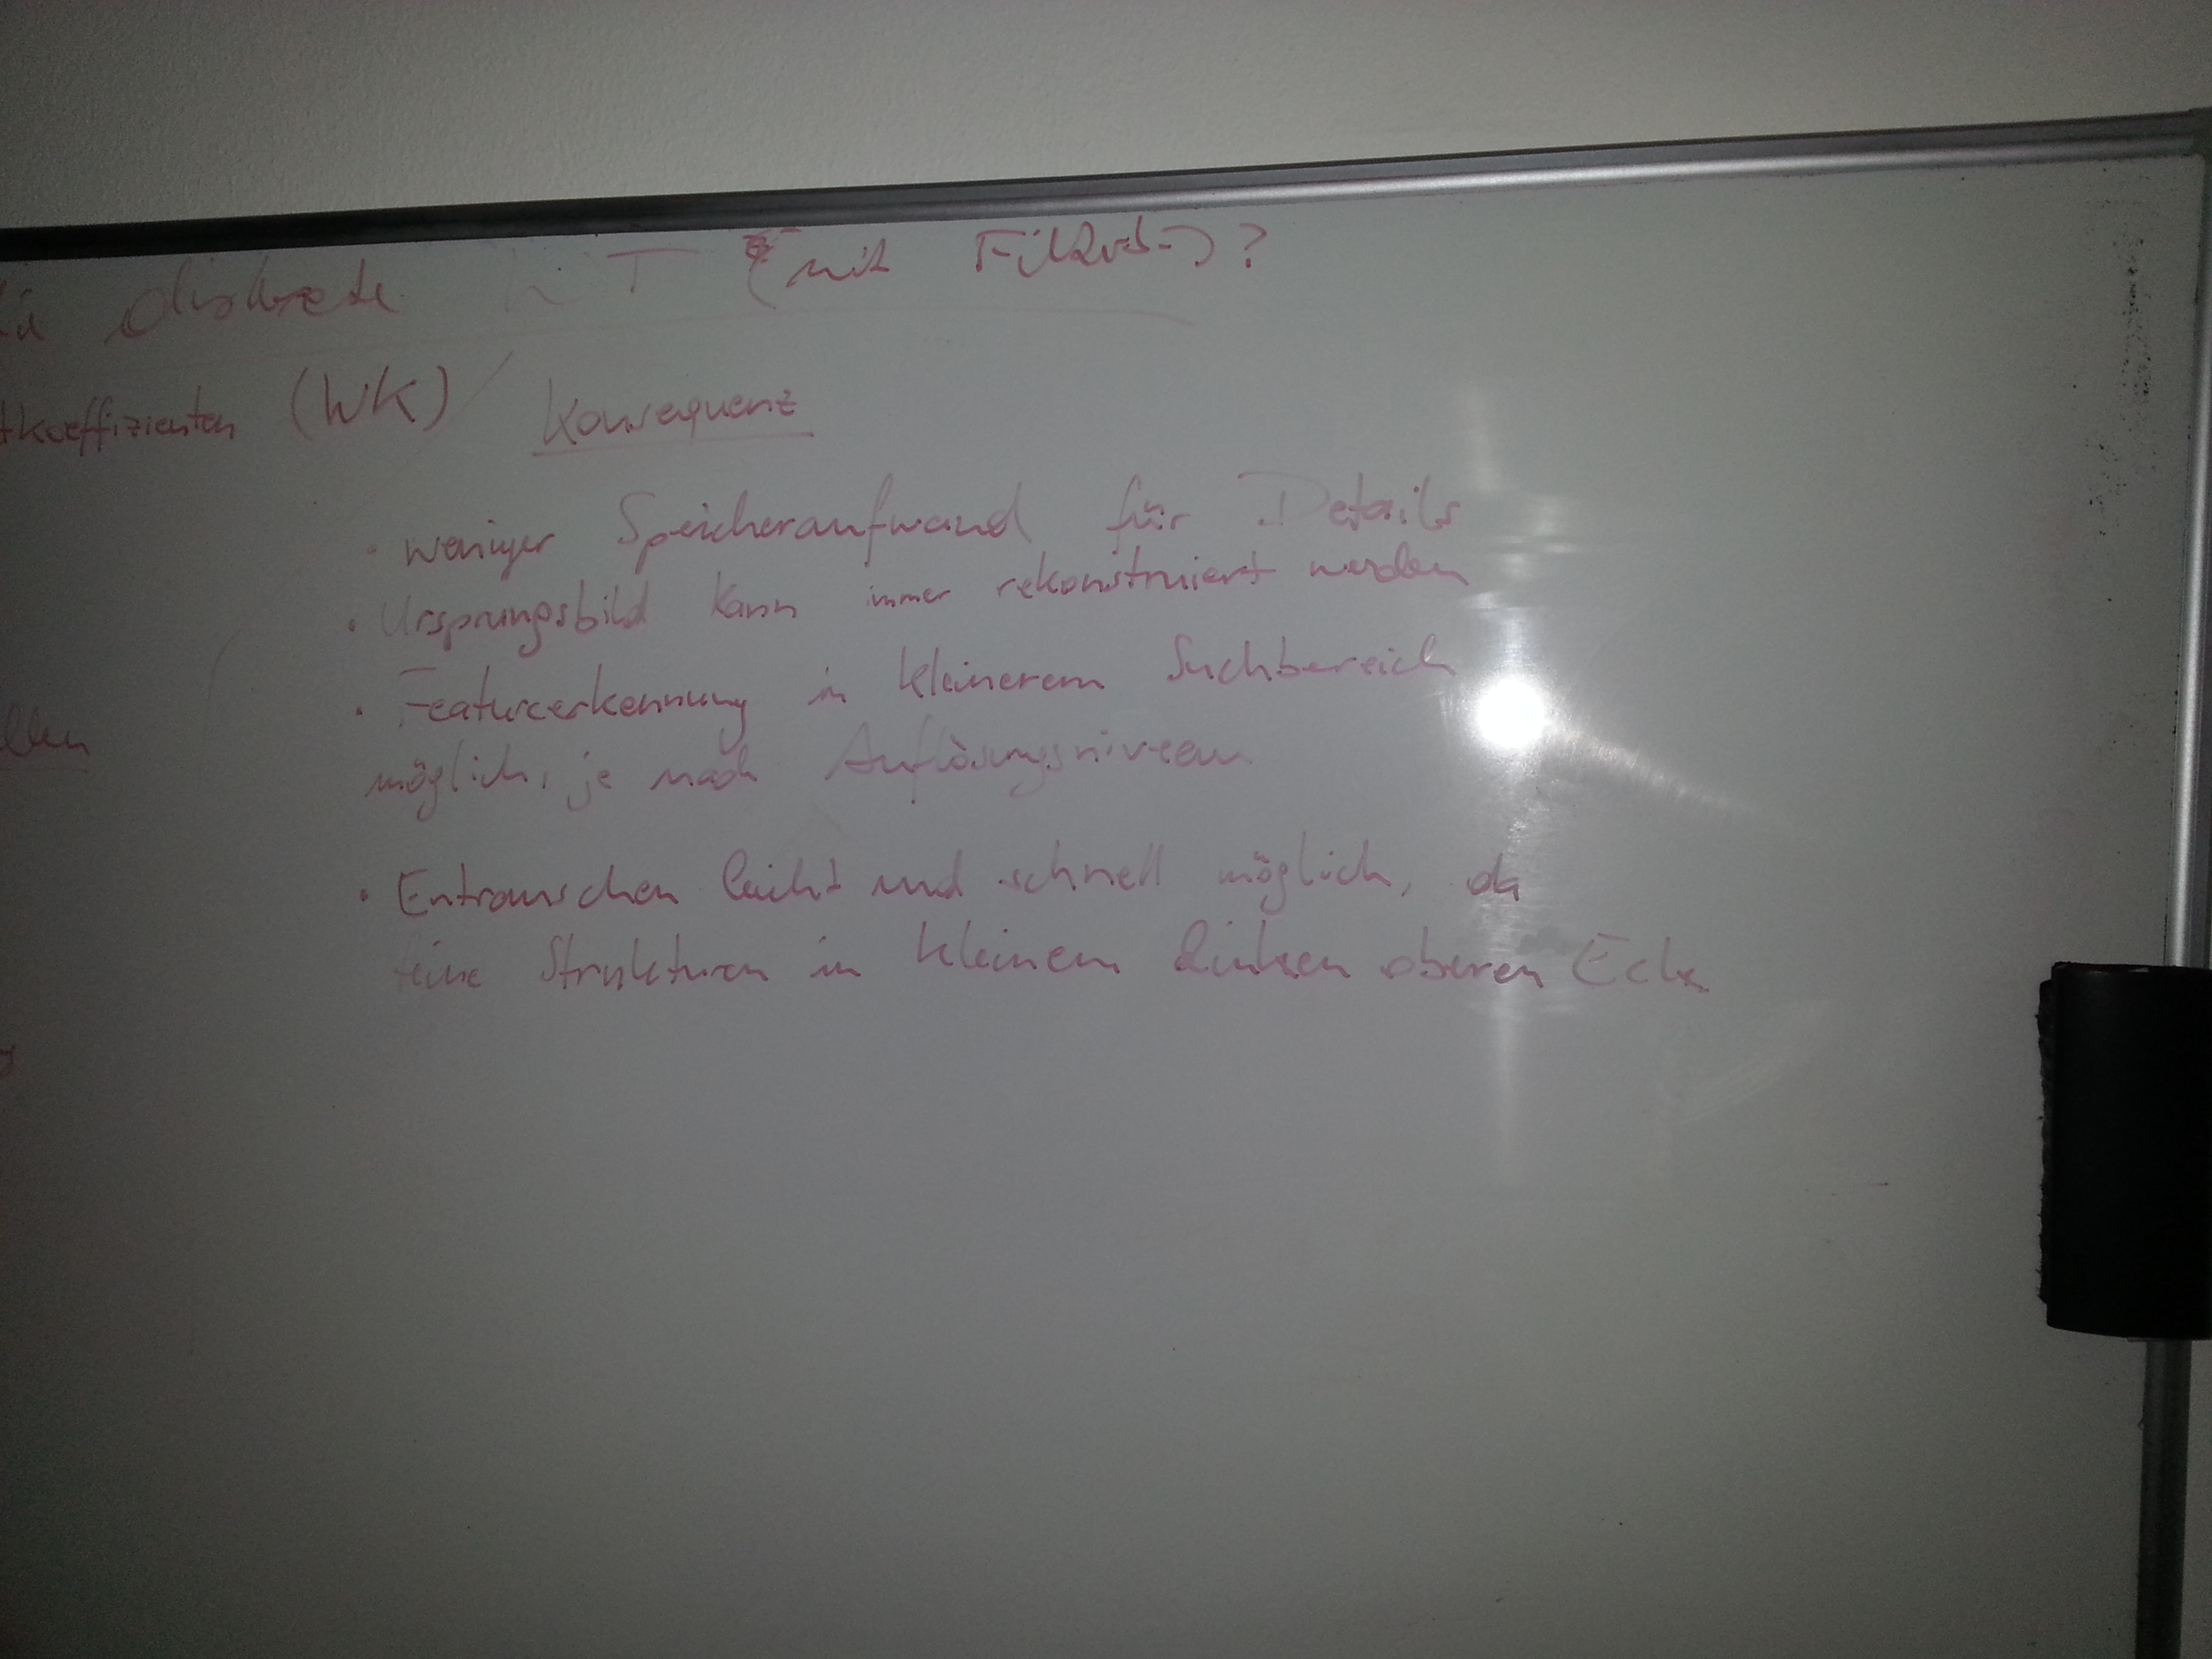 diskrete WT (mit Filter)?
tkoeffizienten (WK) Konsequenz
• weniger Speicheraufwand für Details
• Ursprungsbild kann immer rekonstruiert werden
• Featureerkennung in kleinerem Suchbereich
möglich, je nach Auflösungsniveau
• Entrauschen leicht und schnell möglich, da
feine Strukturen in kleinem linken oberen Ecke